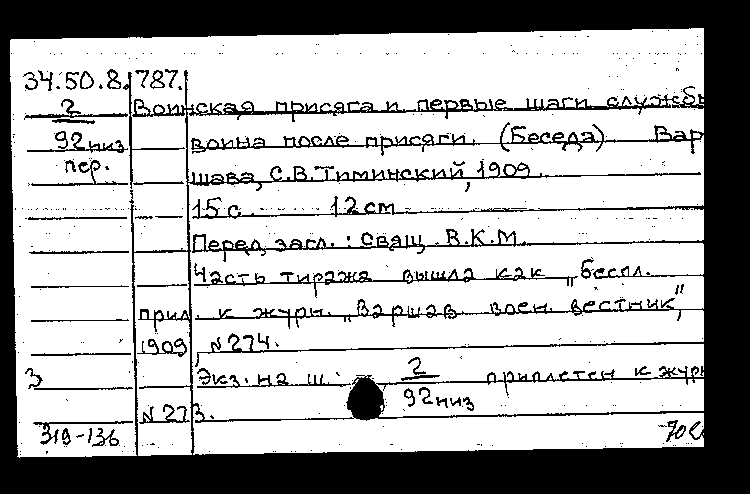 34.50.8.787.
2 Воинская присяга и первые шаги службы
92 низ воина после присяги. (Беседа). Вар-
пер. шава, С.В.Тиминский, 1909.
15 с. 12 см
Перед загл.: свящ. В.К.М.
Часть тиража вышла как „беспл.
прил. к журн. „Варшав. воен. вестник",
1909, N 274.
3 Экз. на ш.: 2 приплетен к журн
92 низ
N 273.
319-136